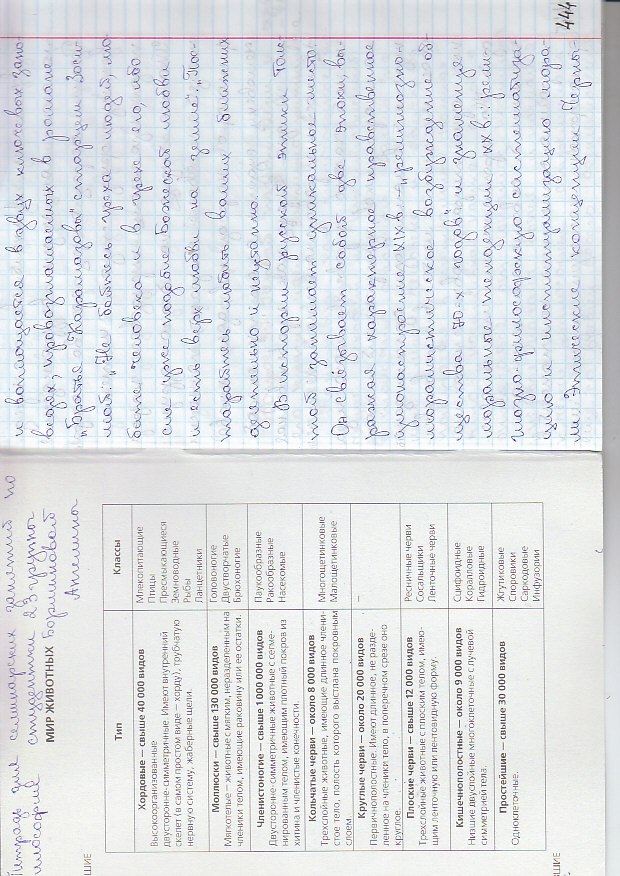 Тетрадь для семинарских занятий по
философии студентки 23 группы
МИР ЖИВОТНЫХ Бормашовой
Ангелины
Тип Классы
Хордовые — свыше 40 000 видов
Высокоорганизованные
двусторонне-симметричные. Имеют внутренний
скелет (в самом простом виде — хорду), трубчатую
нервную систему, жаберные щели.
Млекопитающие
Птицы
Пресмыкающиеся
Земноводные
Рыбы
Ланцетники
Моллюски — свыше 130 000 видов
Мягкотелые — животные с мягким, неразделенным на
членики телом, имеющие раковину или ее остатки.
Головоногие
Двустворчатые
Брюхоногие
Членистоногие — свыше 1 000 000 видов
Двусторонне-симметричные животные с сегме-
нированным телом, имеющим плотный покров из
хитина и членистые конечности.
Паукообразные
Ракообразные
Насекомые
Кольчатые черви — около 8 000 видов
Трехслойные животные, имеющие длинное члени-
стое тело, полость которого выстлана покровным
слоем
Многощетинковые
Малощетинковые
Круглые черви — около 20 000 видов
Первичнополостные. Имеют длинное, не разде-
ленное на членике тело, в поперечном срезе оно
круглое
–
Плоские черви — свыше 12 000 видов
Трехслойные животные с плоским телом, имею-
щим ленточную или лентовидную форму.
Ресничные черви
Сосальщики
Ленточные черви
Кишечнополостные — около 9 000 видов
Низшие двуслойные многоклеточные с лучевой
симметрией тела.
Сцифоидные
Коралловые
Гидроидные
Простейшие — свыше 30 000 видов
Одноклеточные.
Жгутиковые
Споровики
Саркодовые
Инфузории
ВШИЕ
ВШИЕ
и воплощается в двух ключевых запо-
ведях, провозглашаемых в романе
„Братья Карамазовы" старцем Зоси-
мой: „Не бойтесь греха людей, лю-
бите человека и в грехе его, ибо
сие уже подобие Божеской любви
и есть верх любви на земле". „Пос-
тарайтесь любить ваших ближних
деятельно и неустанно.
В истории русской этики Толс-
той занимает уникальное место.
Он связывает собой две эпохи, вы-
ражая характерное нравственное
умонастроение XIX в. – „религиозно-
моралистическое возбуждение об-
щества 70-х годов" и знаменуя
моральные тенденции XX в.: рели-
гиозно-философскую систематиза-
цию и институциализацию мора-
ли. Этические концепции Черны-
444